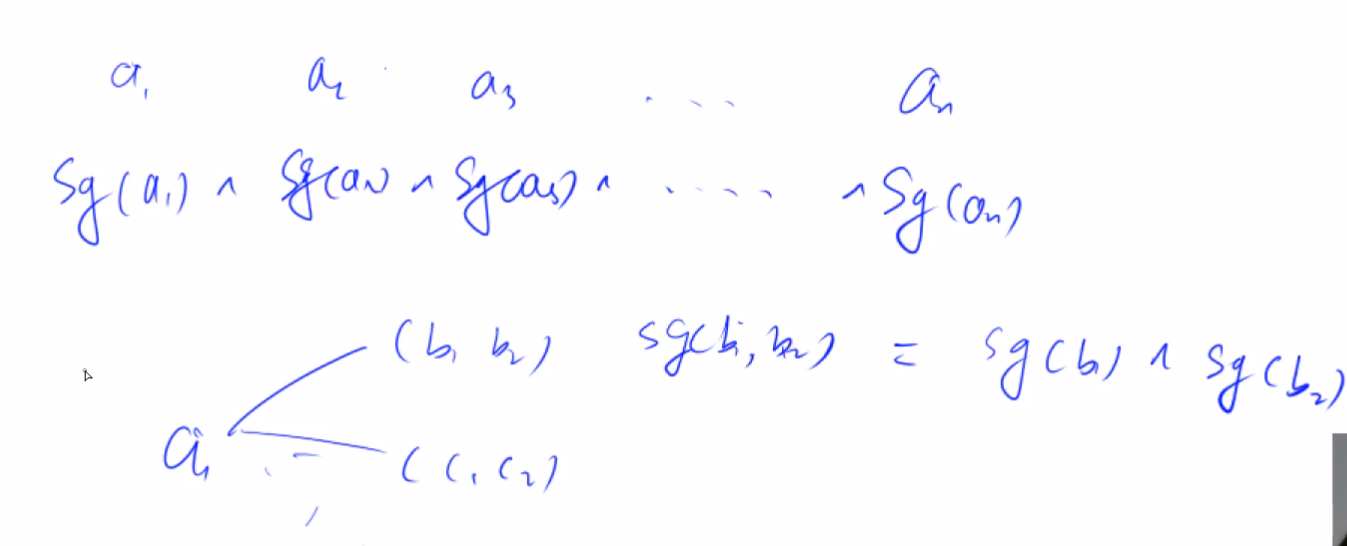 a₁ a₂ a₃ . . . . aₙ
Sg(a₁) ^ Sg(a₂) ^ Sg(a₃) ^ . . . . ^ Sg(aₙ)
(b₁ b₂) sg(b₁, b₂) = sg(b₁) ^ sg(b₂)
a₁ (c₁ c₂)